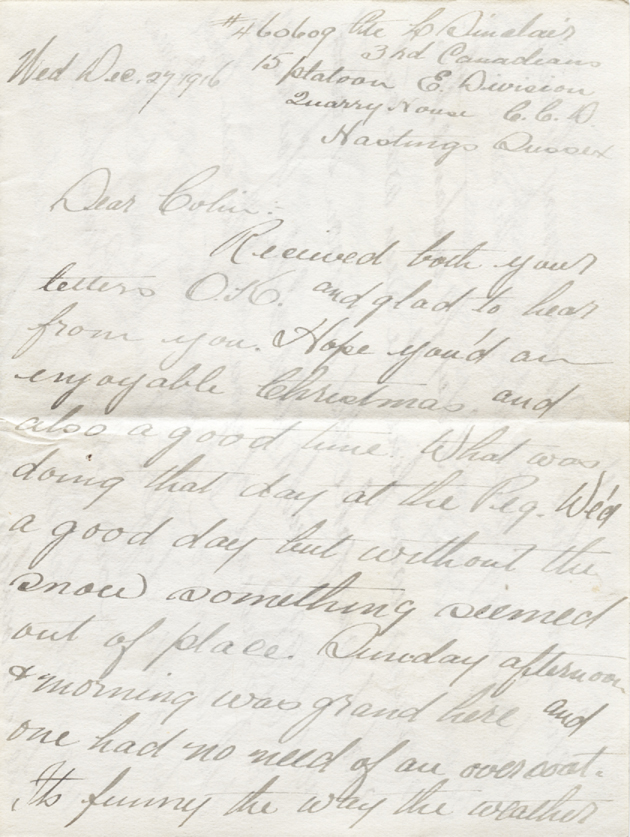 #460609 Pte C Sinclair
3rd Canadians
Wed Dec. 27 1916
15 platoon E. Division
Quarry House C.C.D.
Hastings Sussex
Dear Colin:-
Recieved both your
letters O.K. and glad to hear
from you. Hope you'd an
enjoyable Christmas and
also a good time. What was
doing that day at the Peg. We'd
a good day but without the
snow something seemed
out of place. Sunday afternoon
& morning was grand here and
one had no need of an overcoat.
It's funny the way the weather